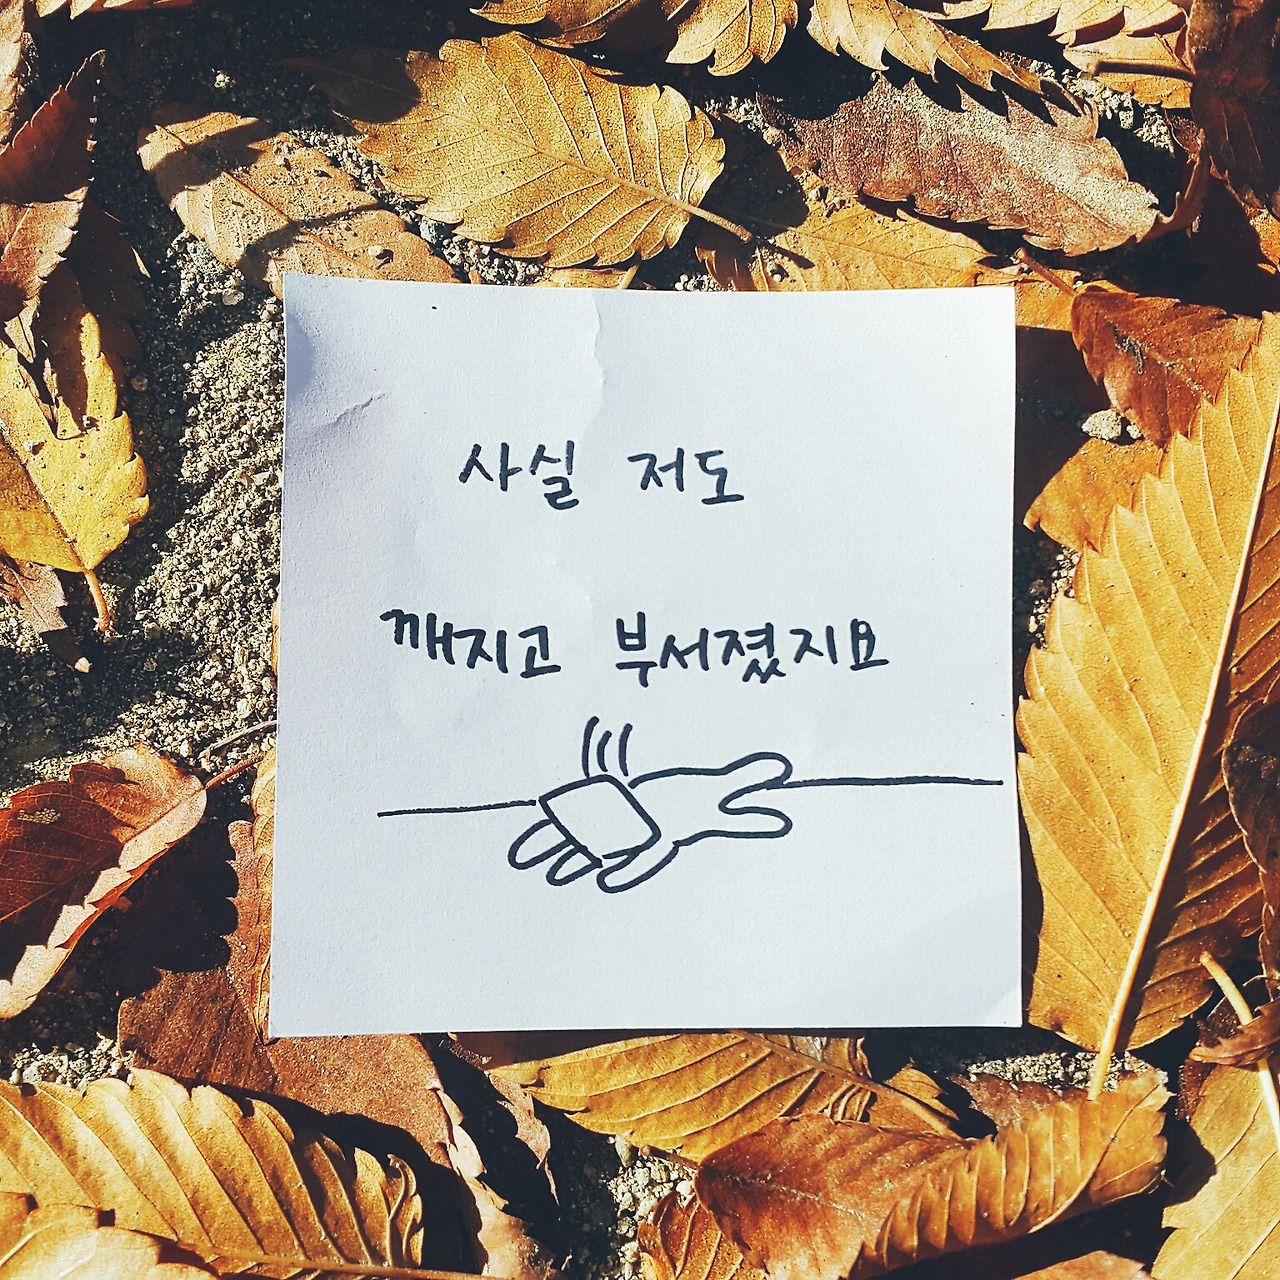 사실 저도
깨지고 부서졌지요